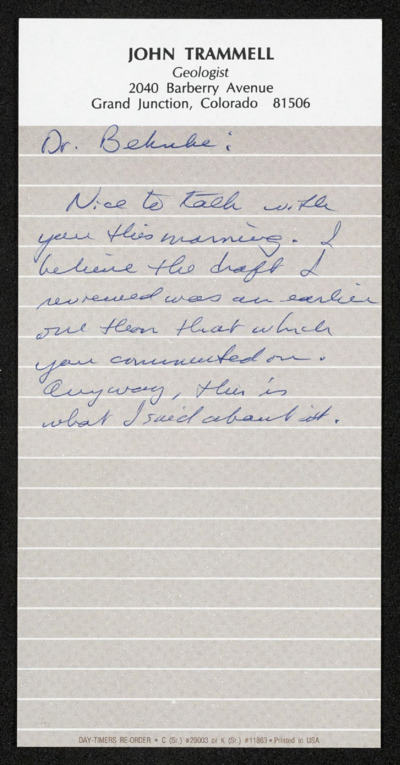 JOHN TRAMMELL
Geologist
2040 Barberry Avenue
Grand Junction, Colorado 81506
Dr. Behnke:
Nice to talk with
you this morning. I
believe the draft I
reviewed was an earlier
one than that which
you commented on.
Anyway, this is
what I said about it.
DAY-TIMERS RE-ORDER • C (Sr.) #29003 or K (Sr.) #11863 • Printed in USA